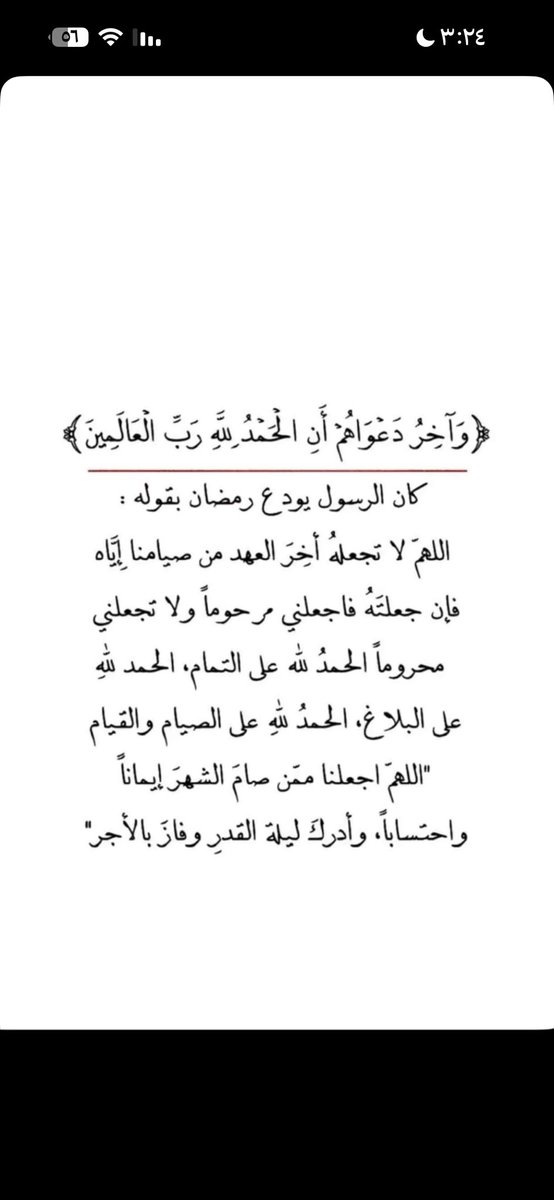 ٥٦
٣:٢٤
﴿وَآخِرُ دَعْوَاهُمْ أَنِ الْحَمْدُ لِلَّهِ رَبِّ الْعَالَمِينَ﴾
كان الرسول يودع رمضان بقوله :
اللهمّ لا تجعلهُ أخِرَ العهد من صيامنا إيَّاه
فإن جعلتَهُ فاجعلني مرحوماً ولا تجعلني
محروماً الحمدُ لله على التمام، الحمد للهِ
على البلاغ، الحمدُ للهِ على الصيام والقيام
"اللهمّ اجعلنا ممّن صامَ الشهرَ إيماناً
واحتساباً، وأدركَ ليلة القدرِ وفازَ بالأجر"